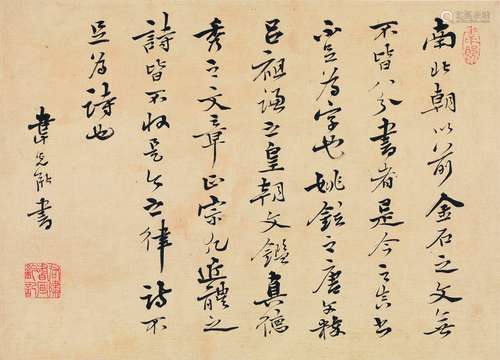 南北朝以前金石之文無
不皆八分書者是今之真書
不足為字也姚鉉之唐文粹
呂祖謙之皇朝文鑑真德
秀之文章正宗凡近體之
詩皆不收是今之律詩不
足為詩也
韋光黻書